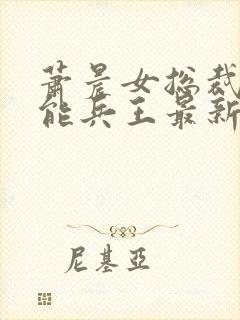 萧晨女总裁
能兵王最新
尼基亞